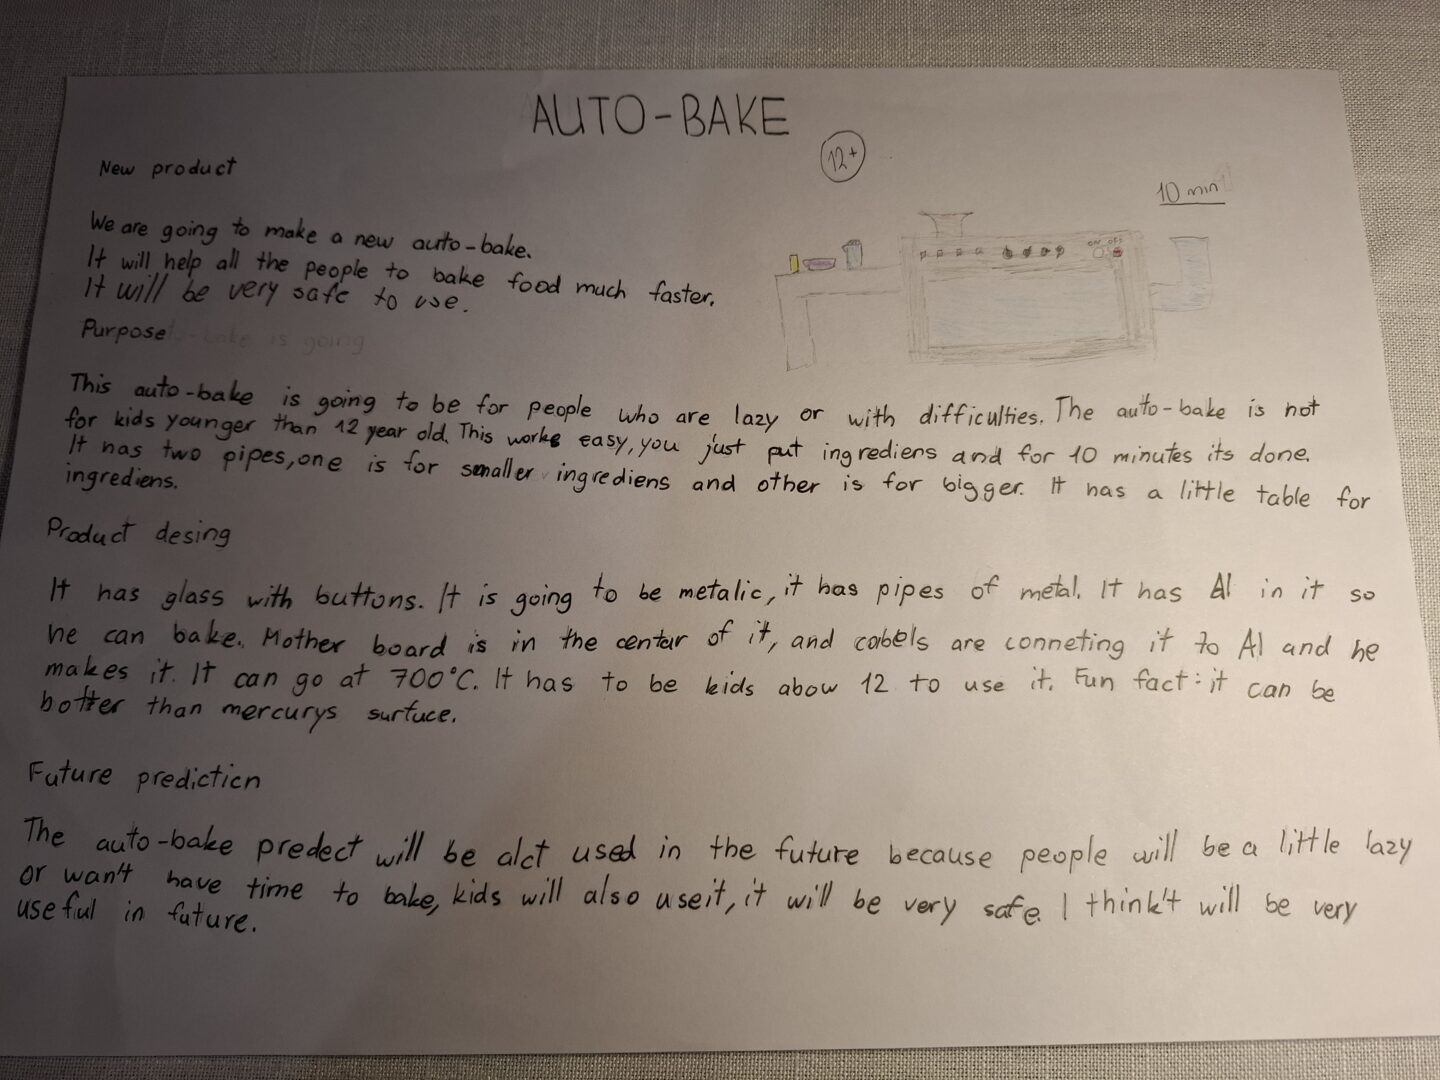 AUTO-BAKE
12+
New product
10 min
We are going to make a new auto-bake.
It will help all the people to bake food much faster.
It will be very safe to use.
ON OFF
Purpose
This auto-bake is going to be for people who are lazy or with difficulties. The auto-bake is not
for kids younger than 12 year old. This works easy, you just put ingrediens and for 10 minutes its done.
It has two pipes, one is for smaller ingrediens and other is for bigger. It has a little table for
ingrediens.
Product desing
It has glass with buttons. It is going to be metalic, it has pipes of metal. It has AI in it so
he can bake. Mother board is in the centar of it, and cabels are conneting it to AI and he
makes it. It can go at 700°C. It has to be kids abow 12 to use it. Fun fact: it can be
hotter than mercurys surfuce.
Future prediction
The auto-bake predect will be alot used in the future because people will be a little lazy
or wan't have time to bake, kids will also useit, it will be very safe. I think't will be very
useful in future.